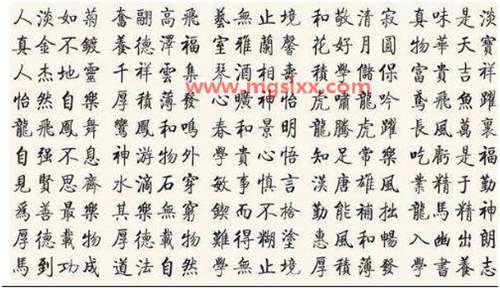 人淡如菊 奮翮高飛 藝無止境 和敬清寂 真味是淡
真金不鍍 養德澤福 室雅蘭馨 花好月圓 物華天寶
人杰地靈 千祥雲集 琴 相壽 學儲保 富貴吉祥
www.mgslxx.com
怡然自樂 厚積薄發 曠神怡 虎嘯龍吟 鳶飛魚躍
龍飛鳳舞 鸞鳳和鳴 春和景明 龍騰虎躍 長風萬裏
自强不息 神游物外 學貴心悟 知足常樂 吃虧是福
見賢思齊 水滴石穿 敏事慎言 漢唐雄風 業精于勤
爲善最樂 其樂無窮 鍥而不捨 勤能補拙 龍馬精神
厚德載物 厚德載物 難得糊塗 惠風和暢 入幽出朗
馬到功成 道法自然 學無止境 厚積薄發 學書養志